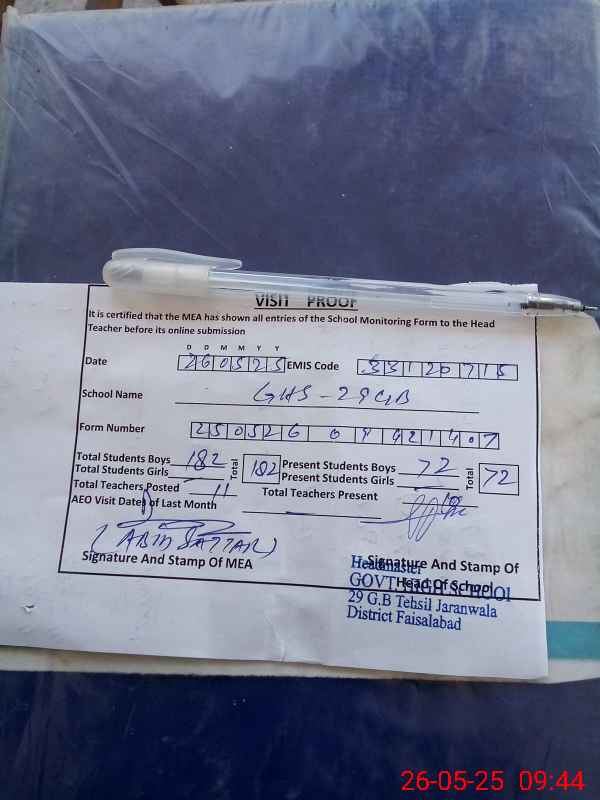 VISIT PROOF
It is certified that the MEA has shown all entries of the School Monitoring Form to the Head
Teacher before its online submission
D D M M Y Y
Date 260525 EMIS Code 33120715
School Name GHS - 29GB
Form Number
Total Students Boys 182 Total 182 Present Students Boys 72 Total 72
Total Students Girls Present Students Girls
Total Teachers Posted 11 Total Teachers Present
AEO Visit Dates of Last Month
(ABID SATTAR)
Signature And Stamp Of MEA
Signature And Stamp Of
Head Of School
Headmaster
GOVT. HIGH SCHOOL
29 G.B Tehsil Jaranwala
District Faisalabad
26-05-25 09:44